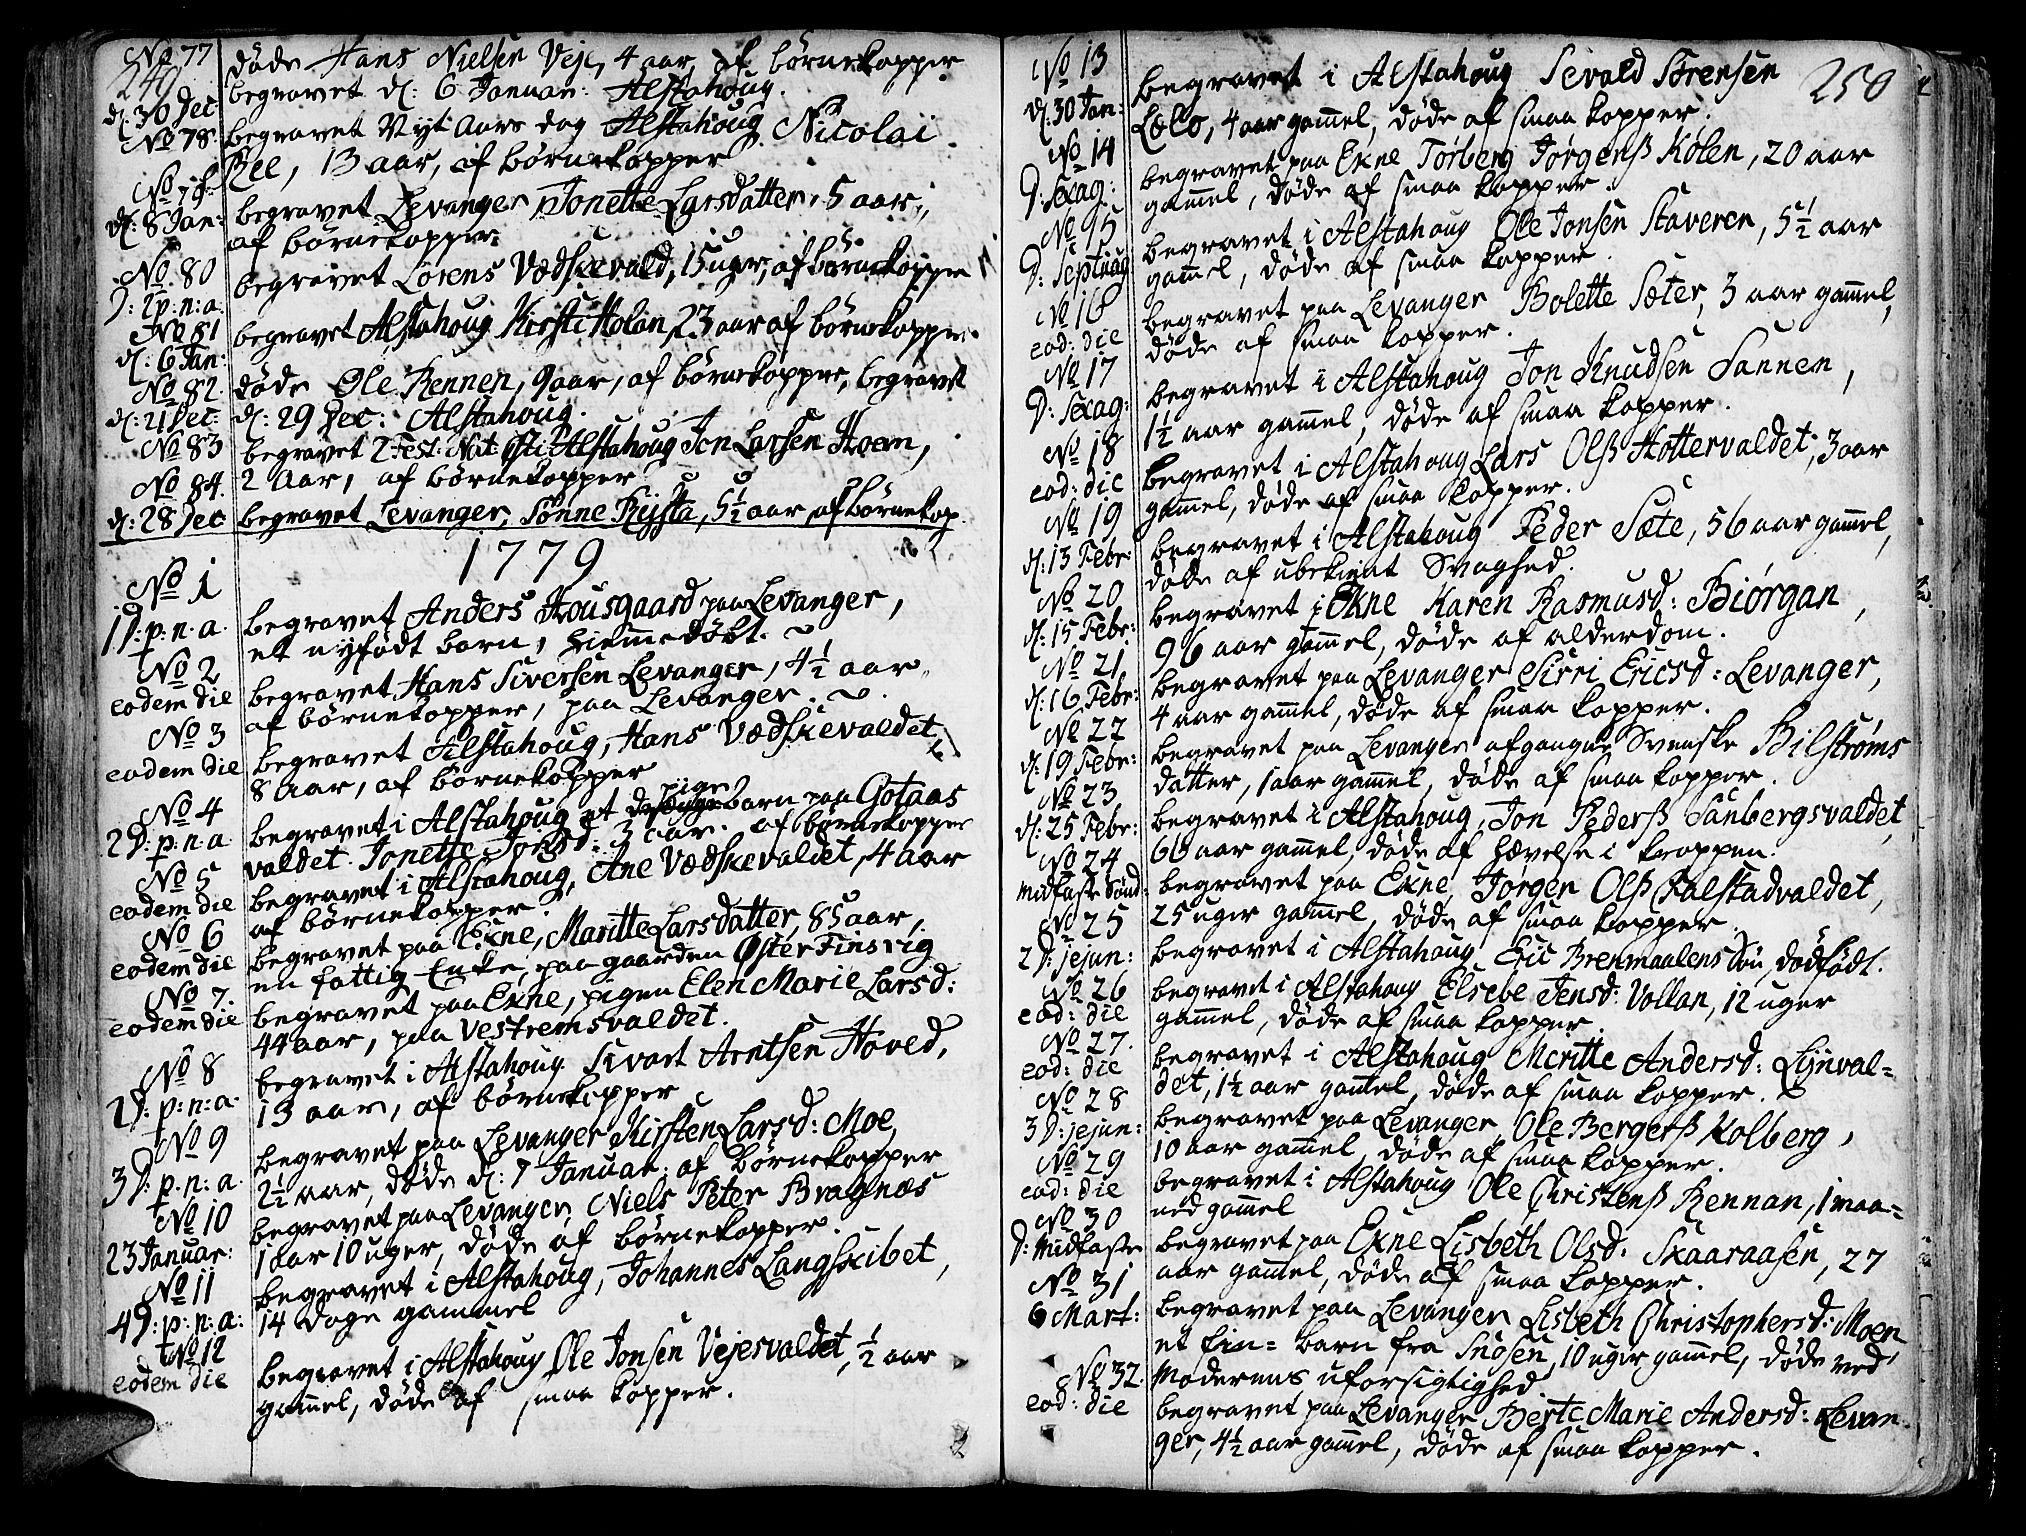 249
No 77
d: 30 Dec
døde Hans Nielsen Veje, 4 aar, af børnekopper
begravet d: 6 Januar: Alstahoug.
No 78.
begravet Nyt Aars dag Alstahoug Nicolai
Ree, 13 aar, af børnekopper
No 79.
d: 8 Jan:
begravet Levanger Jonette Larsdatter, 5 aar,
af børnekopper
No. 80
D: 1 p: n: a.
begravet Lorens Vædskevald, 15 uger, af børnekopper
No 81
d: 6 Jan:
begravet Alstahoug Kirsti Holan, 23 aar af børnekopper.
No 82.
d: 21 Dec:
døde Ole Rennen, 9 aar, af børnekopper, begravet
d: 29 Dec: Alstahoug.
No 83
begravet 2 Fest: Nat: Alstahoug Jon Larsen Hoem,
2 Aar, af børnekopper
No 84.
d: 28 Dec
begravet Levanger, Sønne Rijsta, 5½ aar, af børnekop.
1779
No 1
1 D: p: n: a.
begravet Anders Housgaard paa Levanger,
et nyfødt barn, hiemmedøbt.
No 2
eodem die
begravet Hans Siversen Levanger, 4½ aar
af børnekopper, paa Levanger.
No 3
eodem die
begravet Alstahoug, Hans Vædskevaldet,
8 Aar, af børnekopper
No 4
2 D: p: n: a
pige
begravet i Alstahoug et barn paa Gotaas
valdet Jonette Jonsd: 3 aar. af børnekopper
No 5
eodem die
begravet i Alstahoug, Ane Vædskevaldet, 4 aar
af børnekopper.
No 6
eodem die
begravet paa Ekne, Maritte Larsdatter, 85 aar,
en fattig Enke, paa gaarden Øster Finsvig
No 7.
eodem die
begravet paa Ekne, pigen Elen Marie Larsd:
44 aar, paa Vestremsvaldet.
No 8
2 D: p: n: a.
begravet i Alstahoug Sivart Arntsen Hoved,
13 aar, af børnekopper
No 9
3 D: p. n: a.
begravet paa Levanger Kirsten Larsd: Moe,
2½ aar, døde d: 7 Januar: af børnekopper
No 10
23 Januar:
begravet paa Levanger, Niels Peter Bragnæs
1 aar 10 uger, døde af børnekopper.
No 11
4 D: p: n: a:
begravet i Alstahoug, Johannes Langskibet,
14 dage gammel
No 12
eodem die
begravet i Alstahoug Ole Jonsen Vejesvaldet, ½ aar
gammel, døde af smaa kopper.
250
No 13
d: 30 Jan:
begravet i Alstahoug Sevald Sørensen
Lælo, 4 aar gammel, døde af smaa kopper.
No 14
D: Sexag:
begravet paa Ekne Torberg Jørgenss Kølen, 20 aar
gammel, døde af smaa kopper.
No 15
D: Septuag
begravet i Alstahoug Ole Jonsen Staveren, 5½ aar
gammel, døde af smaa kopper.
No 16
eod: die
begravet paa Levanger Bolette Sæter, 3 aar gammel,
døde af smaa kopper.
No 17
D: Sexag:
begravet i Alstahoug Jon Knudsen Sannen,
1½ aar gammel, døde af smaa kopper.
No 18
eod: die
begravet i Alstahoug Lars Olss Hottervaldet, 3 aar
gammel, døde af smaa kopper.
No 19
d: 13 Febr:
begravet i Alstahoug Peder Sæte, 56 aar gammel,
døde af ubekient Svaghed.
No 20
d: 15 Febr:
begravet i Ekne Karen Rasmusd: Biørgan,
96 aar gammel, døde af alderdom.
No 21
d: 16 Febr:
begravet paa Levanger Sirri Ericsd: Levanger,
4 aar gammel, døde af smaa kopper.
No 22
d: 19 Febr:
begravet paa Levanger afgangne Svenske Bilstrøms
datter, 1 aar gammel, døde af smaa kopper.
No 23
d: 25 Febr:
begravet i Alstahoug, Jon Pederss Sanbergsvaldet,
66 aar gammel, døde af hævelse i kroppen.
No 24
Midfaste Sønd:
begravet paa Ekne, Jørgen Olss Falstadvaldet,
25 uger gammel, døde af smaa kopper.
No 25
2 D: jejun:
begravet i Alstahoug, Eric Brenmaalens Søn, dødfødt.
No 26
eod: die
begravet i Alstahoug Elsebe Jensd: Vollan, 12 uger
gammel, døde af smaa kopper.
No 27.
eod: die
begravet i Alstahoug Meritte Andersd: Lynval=
det, 1½ aar gammel, døde af smaa kopper.
No 28
3 D: jejun:
begravet paa Levanger Ole Bergerss Kolberg,
10 aar gammel, døde af smaa kopper.
No 29
eod: die
begravet i Alstahoug Ole Christenss Rennan, 1 maa=
ned gammel
No 30
D: Midfaste
begravet paa Ekne Lisbeth Olsd. Skaaraasen, 27
aar gammel, døde af smaa kopper.
No 31
6 Mart:
begravet paa Levanger Lisbeth Christophersd: Moen,
et Fin= barn fra Snøsen, 10 uger gammel, døde ved
Moderens uforsigtighed.
No 32.
eod: die
begravet paa Levanger Berte Marie Andersd: Levan=
ger, 4½ aar gammel, døde af smaa kopper.